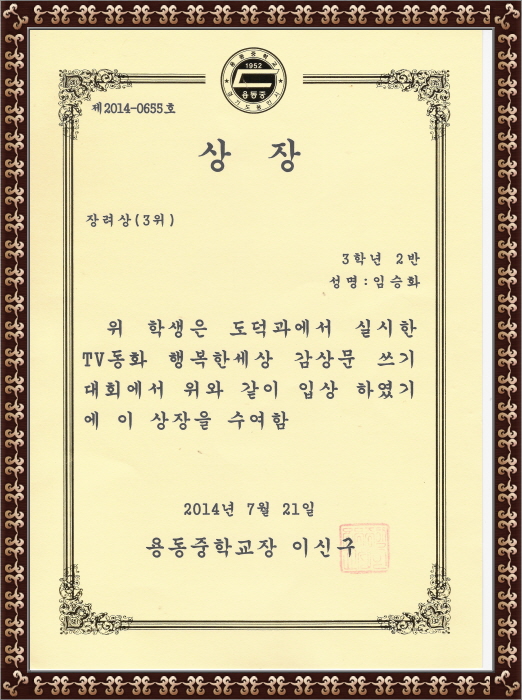 용동중학교
1952
용동중
경기도용인시
제2014-0655호
상 장
장려상(3위)
3학년 2반
성명:임승화
위 학생은 도덕과에서 실시한
TV동화 행복한세상 감상문 쓰기
대회에서 위와 같이 입상 하였기
에 이 상장을 수여함
2014년 7월 21일
용동중학교장 이신구